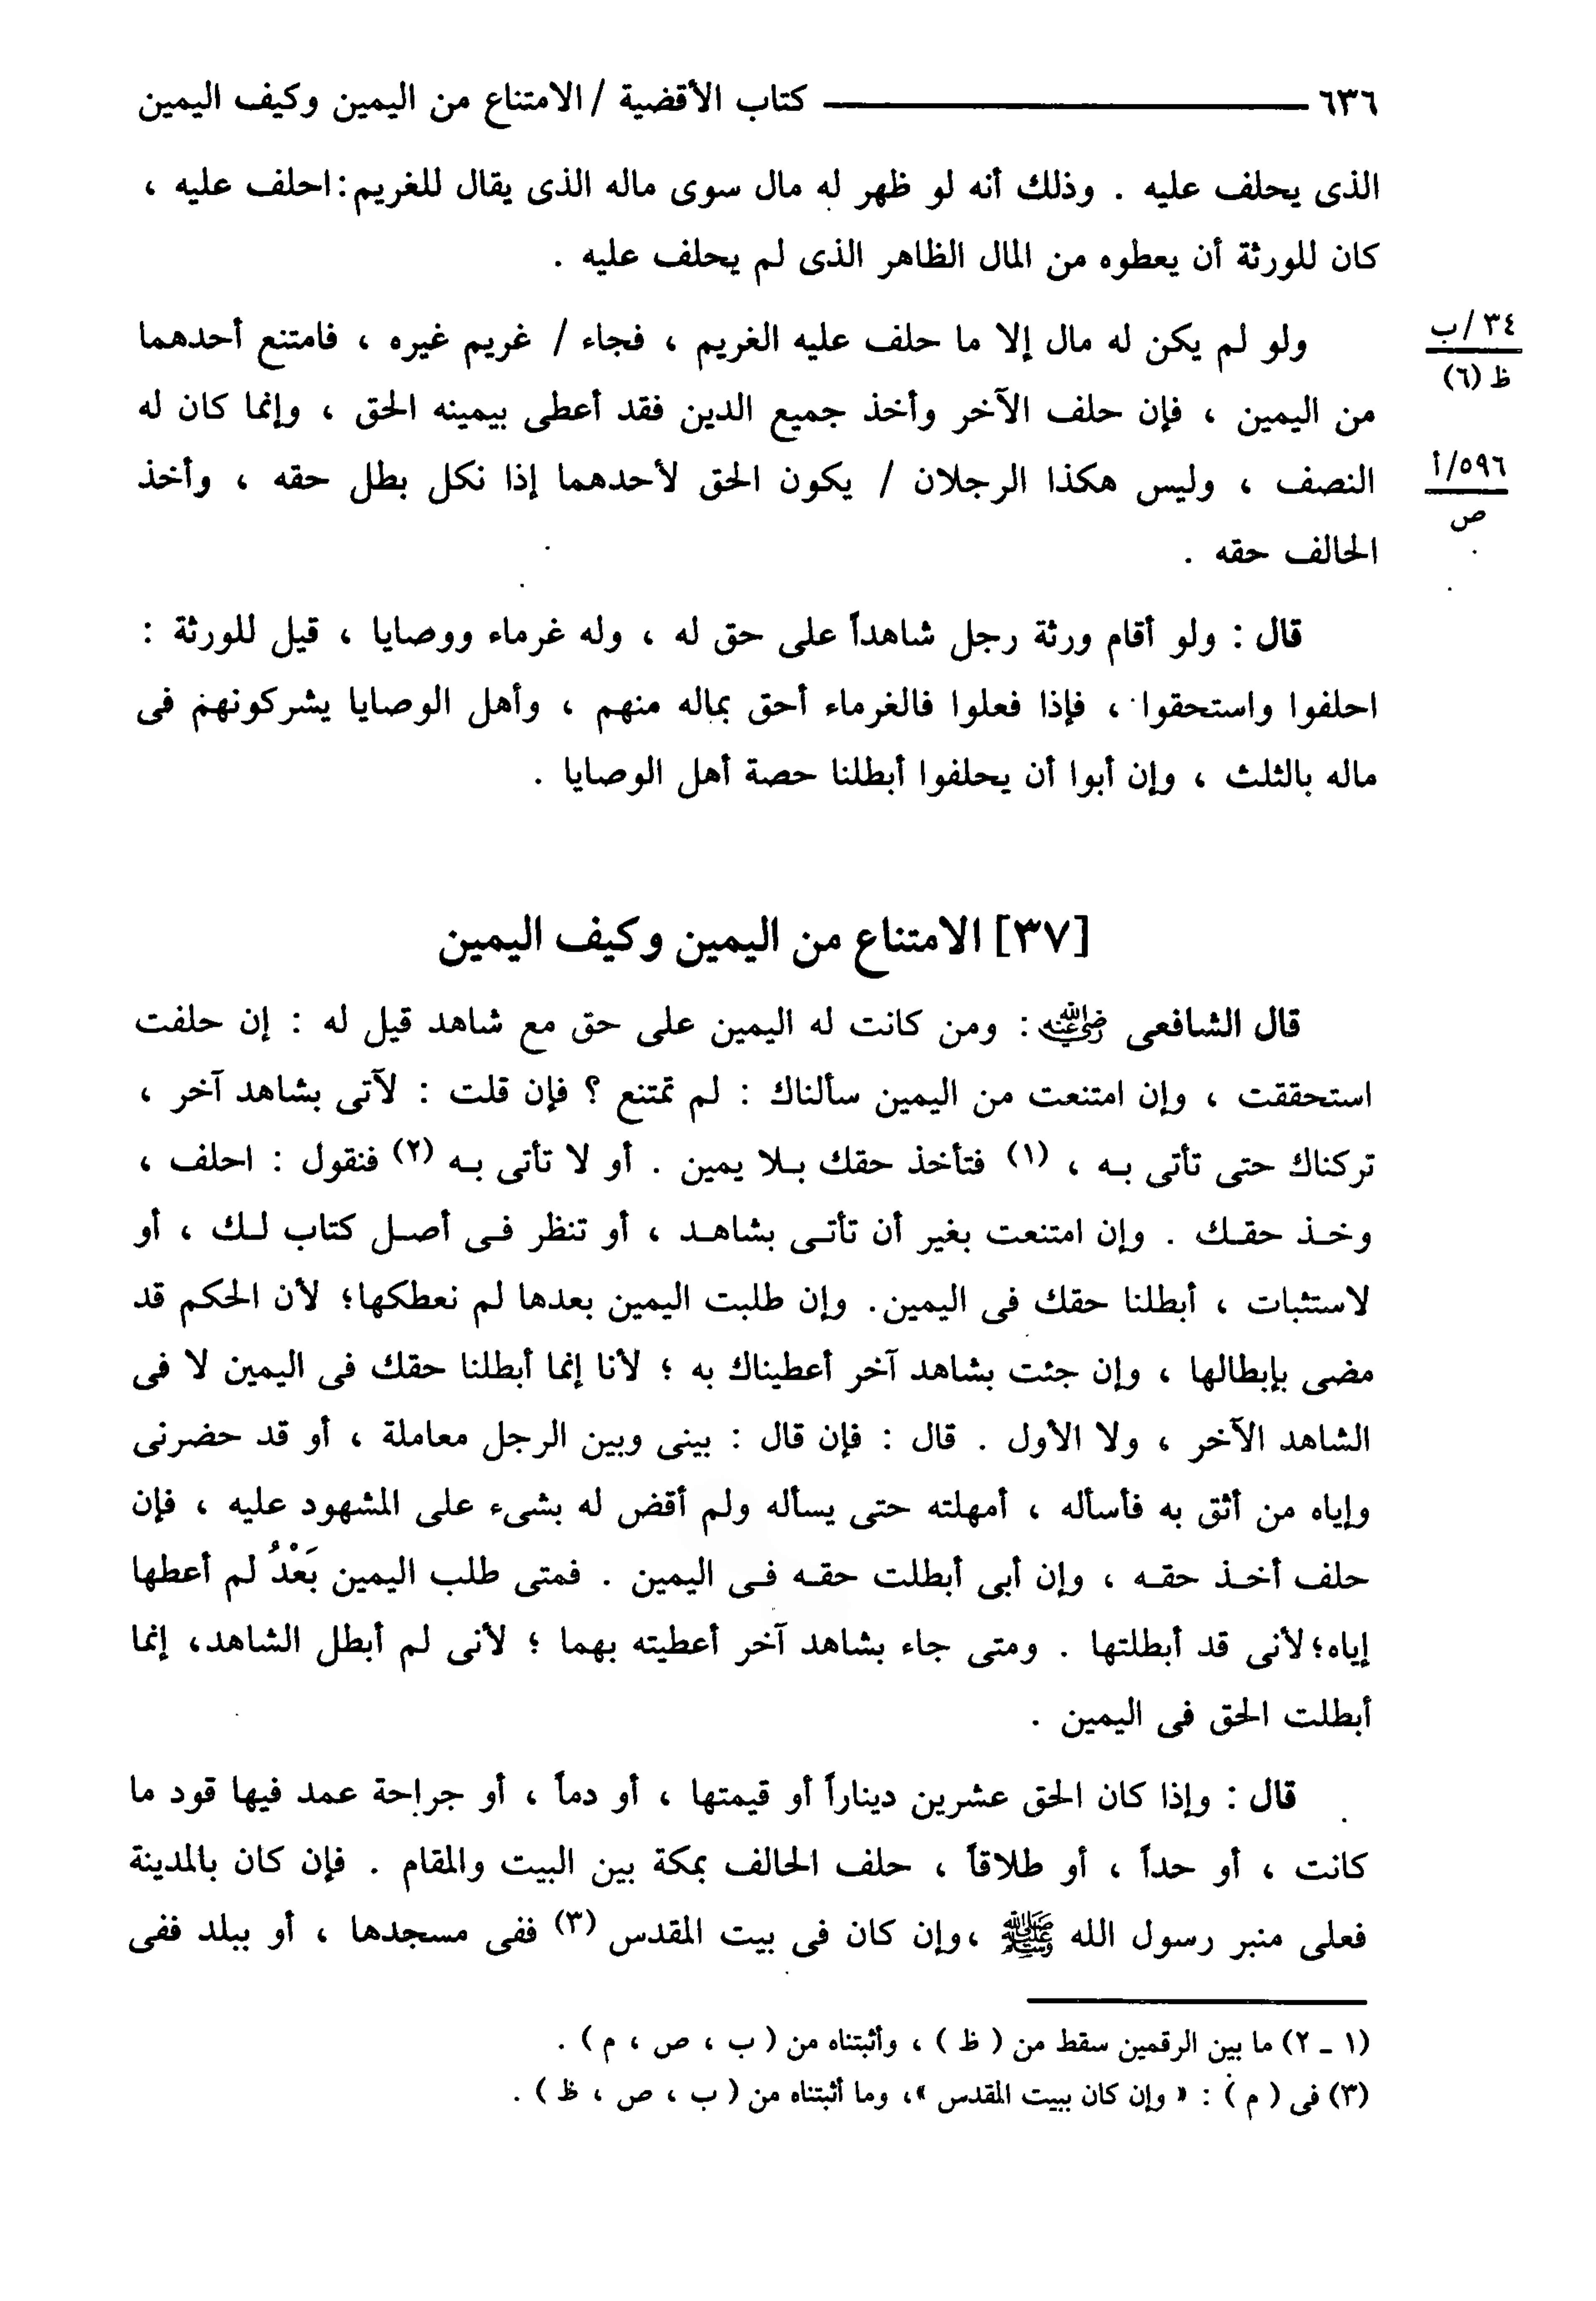 ٦٣٦ ــــــــــــــــ كتاب الأقضية / الامتناع من اليمين وكيف اليمين
الذى يحلف عليه . وذلك أنه لو ظهر له مال سوى ماله الذى يقال للغريم : احلف عليه ،
كان للورثة أن يعطوه من المال الظاهر الذى لم يحلف عليه .
٣٤ /ب
ظ (٦)
ولو لم يكن له مال إلا ما حلف عليه الغريم ، فجاء / غريم غيره ، فامتنع أحدهما
من اليمين ، فإن حلف الآخر وأخذ جميع الدين فقد أعطى بيمينه الحق ، وإنما كان له
٥٩٦/أ
ص
النصف ، وليس هكذا الرجلان / يكون الحق لأحدهما إذا نكل بطل حقه ، وأخذ
الحالف حقه .
قال : ولو أقام ورثة رجل شاهداً على حق له ، وله غرماء ووصايا ، قيل للورثة :
احلفوا واستحقوا ، فإذا فعلوا فالغرماء أحق بماله منهم ، وأهل الوصايا يشركونهم فى
ماله بالثلث ، وإن أبوا أن يحلفوا أبطلنا حصة أهل الوصايا .
[٣٧] الامتناع من اليمين وكيف اليمين
قال الشافعى رضي الله عنه : ومن كانت له اليمين على حق مع شاهد قيل له : إن حلفت
استحققت ، وإن امتنعت من اليمين سألناك : لم تمتنع ؟ فإن قلت : لآتى بشاهد آخر ،
تركناك حتى تأتى به ، (١) فتأخذ حقك بلا يمين . أو لا تأتى به (٢) فنقول : احلف ،
وخذ حقك . وإن امتنعت بغير أن تأتى بشاهد ، أو تنظر فى أصل كتاب لك ، أو
لاستثبات ، أبطلنا حقك فى اليمين . وإن طلبت اليمين بعدها لم نعطكها؛ لأن الحكم قد
مضى بإبطالها ، وإن جئت بشاهد آخر أعطيناك به ؛ لأنا إنما أبطلنا حقك فى اليمين لا فى
الشاهد الآخر ، ولا الأول . قال : فإن قال : بينى وبين الرجل معاملة ، أو قد حضرنى
وإياه من أثق به فأسأله ، أمهلته حتى يسأله ولم أقض له بشىء على المشهود عليه ، فإن
حلف أخذ حقه ، وإن أبى أبطلت حقه فى اليمين . فمتى طلب اليمين بَعْدُ لم أعطها
إياه؛ لأنى قد أبطلتها . ومتى جاء بشاهد آخر أعطيته بهما ؛ لأنى لم أبطل الشاهد، إنما
أبطلت الحق فى اليمين .
قال : وإذا كان الحق عشرين ديناراً أو قيمتها ، أو دماً ، أو جراحة عمد فيها قود ما
كانت ، أو حداً ، أو طلاقاً ، حلف الحالف بمكة بين البيت والمقام . فإن كان بالمدينة
فعلى منبر رسول الله ﷺ ، وإن كان فى بيت المقدس (٣) ففى مسجدها ، أو ببلد ففى
(١ ـ ٢) ما بين الرقمين سقط من ( ظ ) ، وأثبتناه من ( ب ، ص ، م ) .
(٣) فى ( م ) : « وإن كان ببيت المقدس »، وما أثبتناه من ( ب ، ص ، ظ ) .